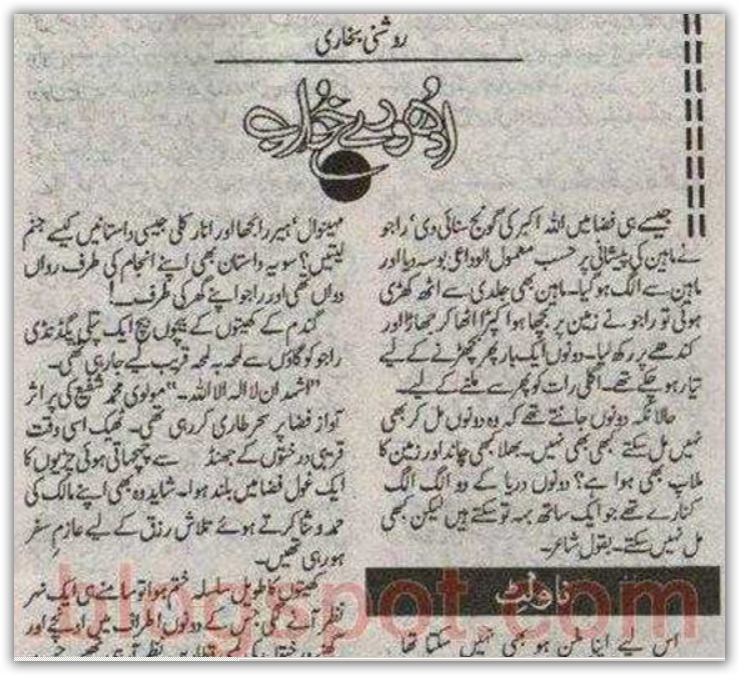 روشنی بخاری
ادھورے خواب
جیسے ہی فضا میں اللہ اکبر کی گونج سنائی دی‘ راجو
نے ماہین کی پیشانی پر حسب معمول الوداعی بوسہ دیا اور
ماہین سے الگ ہو گیا۔ ماہین بھی جلدی سے اٹھ کھڑی
ہوئی تو راجو نے زمین پر بچھا ہوا کپڑا اٹھا کر جھاڑا اور
کندھے پر رکھ لیا۔ دونوں ایک بار پھر بچھڑنے کے لیے
تیار ہو چکے تھے۔ اگلی رات کو پھر سے ملنے کے لیے۔
حالانکہ دونوں جانتے تھے کہ وہ دونوں مل کر بھی
نہیں مل سکتے کبھی بھی نہیں۔ بھلا کبھی چاند اور زمین کا
ملاپ بھی ہوا ہے؟ دونوں دریا کے دو الگ الگ
کنارے تھے جو ایک ساتھ بہہ تو سکتے ہیں لیکن کبھی
مل نہیں سکتے۔ بقول شاعر۔
ناولٹ
اس لیے اپنا ملن ہو بھی نہیں سکتا تھا
مہینوال‘ ہیر رانجھا اور انار کلی جیسی داستانیں کیسے جنم
لیتیں؟ سو یہ داستان بھی اپنے انجام کی طرف رواں
دواں تھی اور راجو اپنے گھر کی طرف۔!
گندم کے کھیتوں کے بیچوں بیچ ایک پتلی پگڈنڈی
راجو کو گاؤں سے لمحہ بہ لمحہ قریب لیے جا رہی تھی۔
”اشہد ان لا الہ الا اللہ۔“ مولوی محمد شفیع کی پر اثر
آواز فضا پر سحر طاری کر رہی تھی۔ ٹھیک اسی وقت
قریبی درختوں کے جھنڈ سے چہچہاتی ہوئی چڑیوں کا
ایک غول فضا میں بلند ہوا۔ شاید وہ بھی اپنے مالک کی
حمد و ثنا کرتے ہوئے تلاش رزق کے لیے عازم سفر
ہو رہی تھیں۔
کھیتوں کا طویل سلسلہ ختم ہوا تو سامنے ہی ایک نہر
نظر آنے لگی جس کے دونوں اطراف میں اونچے اور
blogspot.com